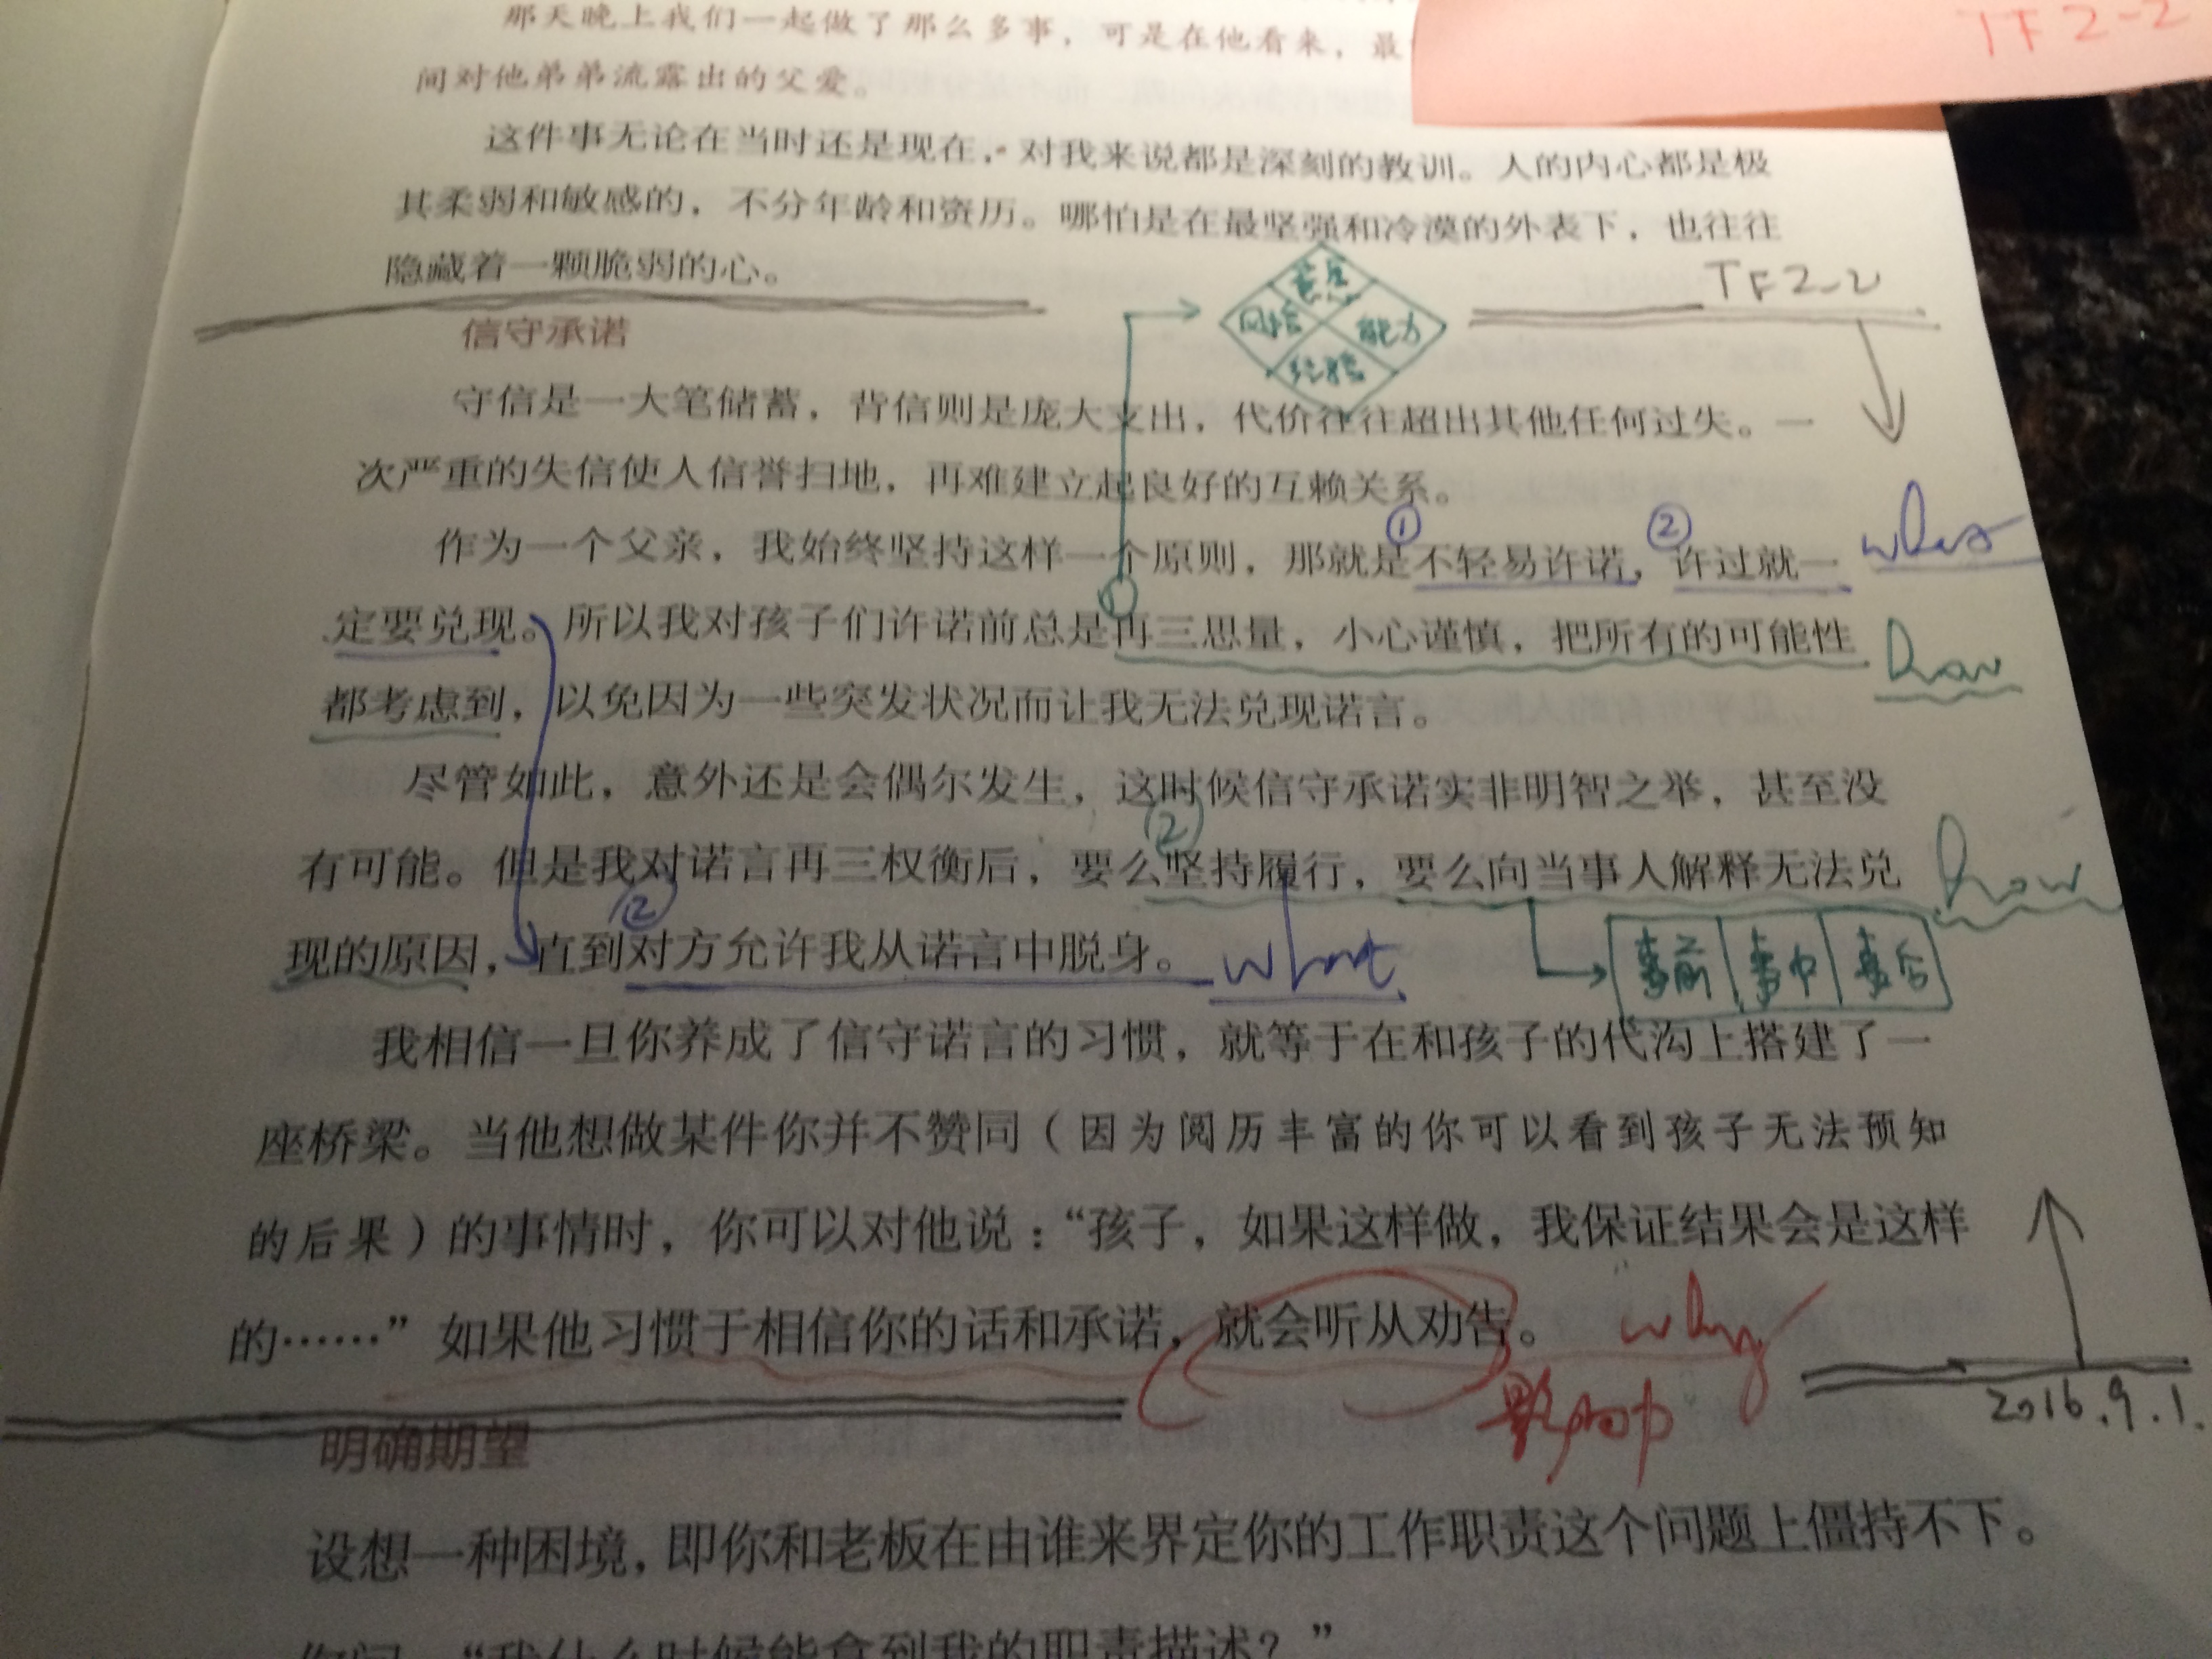 TF2-2
那天晚上我们一起做了那么多事，可是在他看来，最
间对他弟弟流露出的父爱。
这件事无论在当时还是现在，对我来说都是深刻的教训。人的内心都是极
其柔弱和敏感的，不分年龄和资历。哪怕是在最坚强和冷漠的外表下，也往往
隐藏着一颗脆弱的心。
TF2-2
信守承诺
意愿
风险
能力
经验
守信是一大笔储蓄，背信则是庞大支出，代价往往超出其他任何过失。一
次严重的失信使人信誉扫地，再难建立起良好的互赖关系。
① ②
作为一个父亲，我始终坚持这样一个原则，那就是不轻易许诺，许过就一
①
定要兑现。所以我对孩子们许诺前总是再三思量，小心谨慎，把所有的可能性
how
都考虑到，以免因为一些突发状况而让我无法兑现诺言。
尽管如此，意外还是会偶尔发生，这时候信守承诺实非明智之举，甚至没
②
有可能。但是我对诺言再三权衡后，要么坚持履行，要么向当事人解释无法兑
how
②
现的原因，直到对方允许我从诺言中脱身。
what
事前 事中 事后
我相信一旦你养成了信守诺言的习惯，就等于在和孩子的代沟上搭建了一
座桥梁。当他想做某件你并不赞同（因为阅历丰富的你可以看到孩子无法预知
的后果）的事情时，你可以对他说：“孩子，如果这样做，我保证结果会是这样
的……”如果他习惯于相信你的话和承诺，就会听从劝告。
why
2016.9.1.
明确期望
设想一种困境，即你和老板在由谁来界定你的工作职责这个问题上僵持不下。
你问：“我什么时候能拿到我的职责描述？”